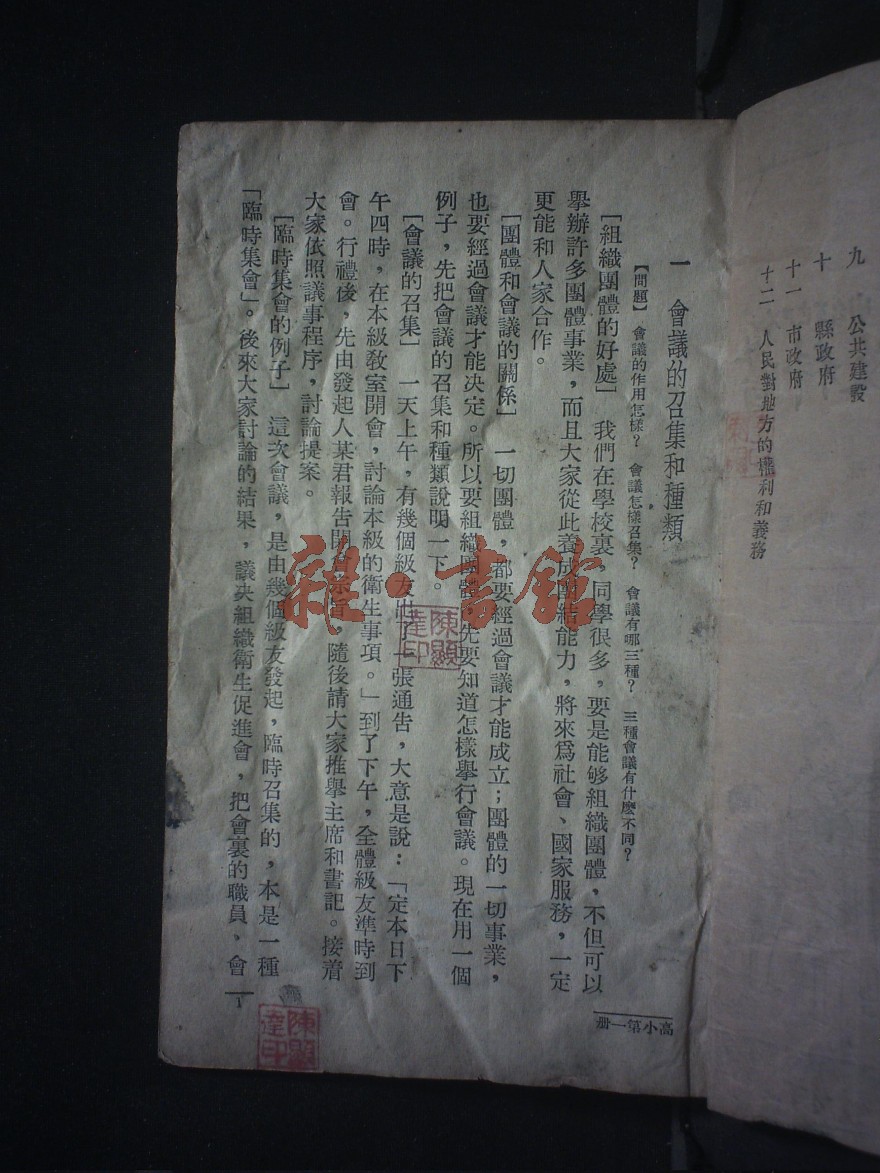 九　公共建設
十　縣政府
十一　市政府
十二　人民對地方的權利和義務
一　會議的召集和種類
【問題】　會議的作用怎樣？　會議怎樣召集？　會議有哪三種？　三種會議有什麼不同？
［組織團體的好處］　我們在學校裏，同學很多，要是能够組織團體，不但可以
舉辦許多團體事業，而且大家從此養成團結能力，將來爲社會、國家服務，一定
更能和人家合作。
［團體和會議的關係］　一切團體，都要經過會議才能成立；團體的一切事業，
也要經過會議才能決定。所以要組織團體，先要知道怎樣舉行會議。現在用一個
例子，先把會議的召集和種類說明一下。
［會議的召集］　一天上午，有幾個級友出了一張通告，大意是說：「定本日下
午四時，在本級敎室開會，討論本級的衛生事項。」到了下午，全體級友準時到
會。行禮後，先由發起人某君報告開會宗旨，隨後請大家推舉主席和書記。接着
大家依照議事程序，討論提案。
［臨時集會的例子］　這次會議，是由幾個級友發起，臨時召集的，本是一種
「臨時集會」。後來大家討論的結果，議决組織衛生促進會，把會裏的職員、會
高小第一册
一
陳顯達印
陳顯達印
雜·書館